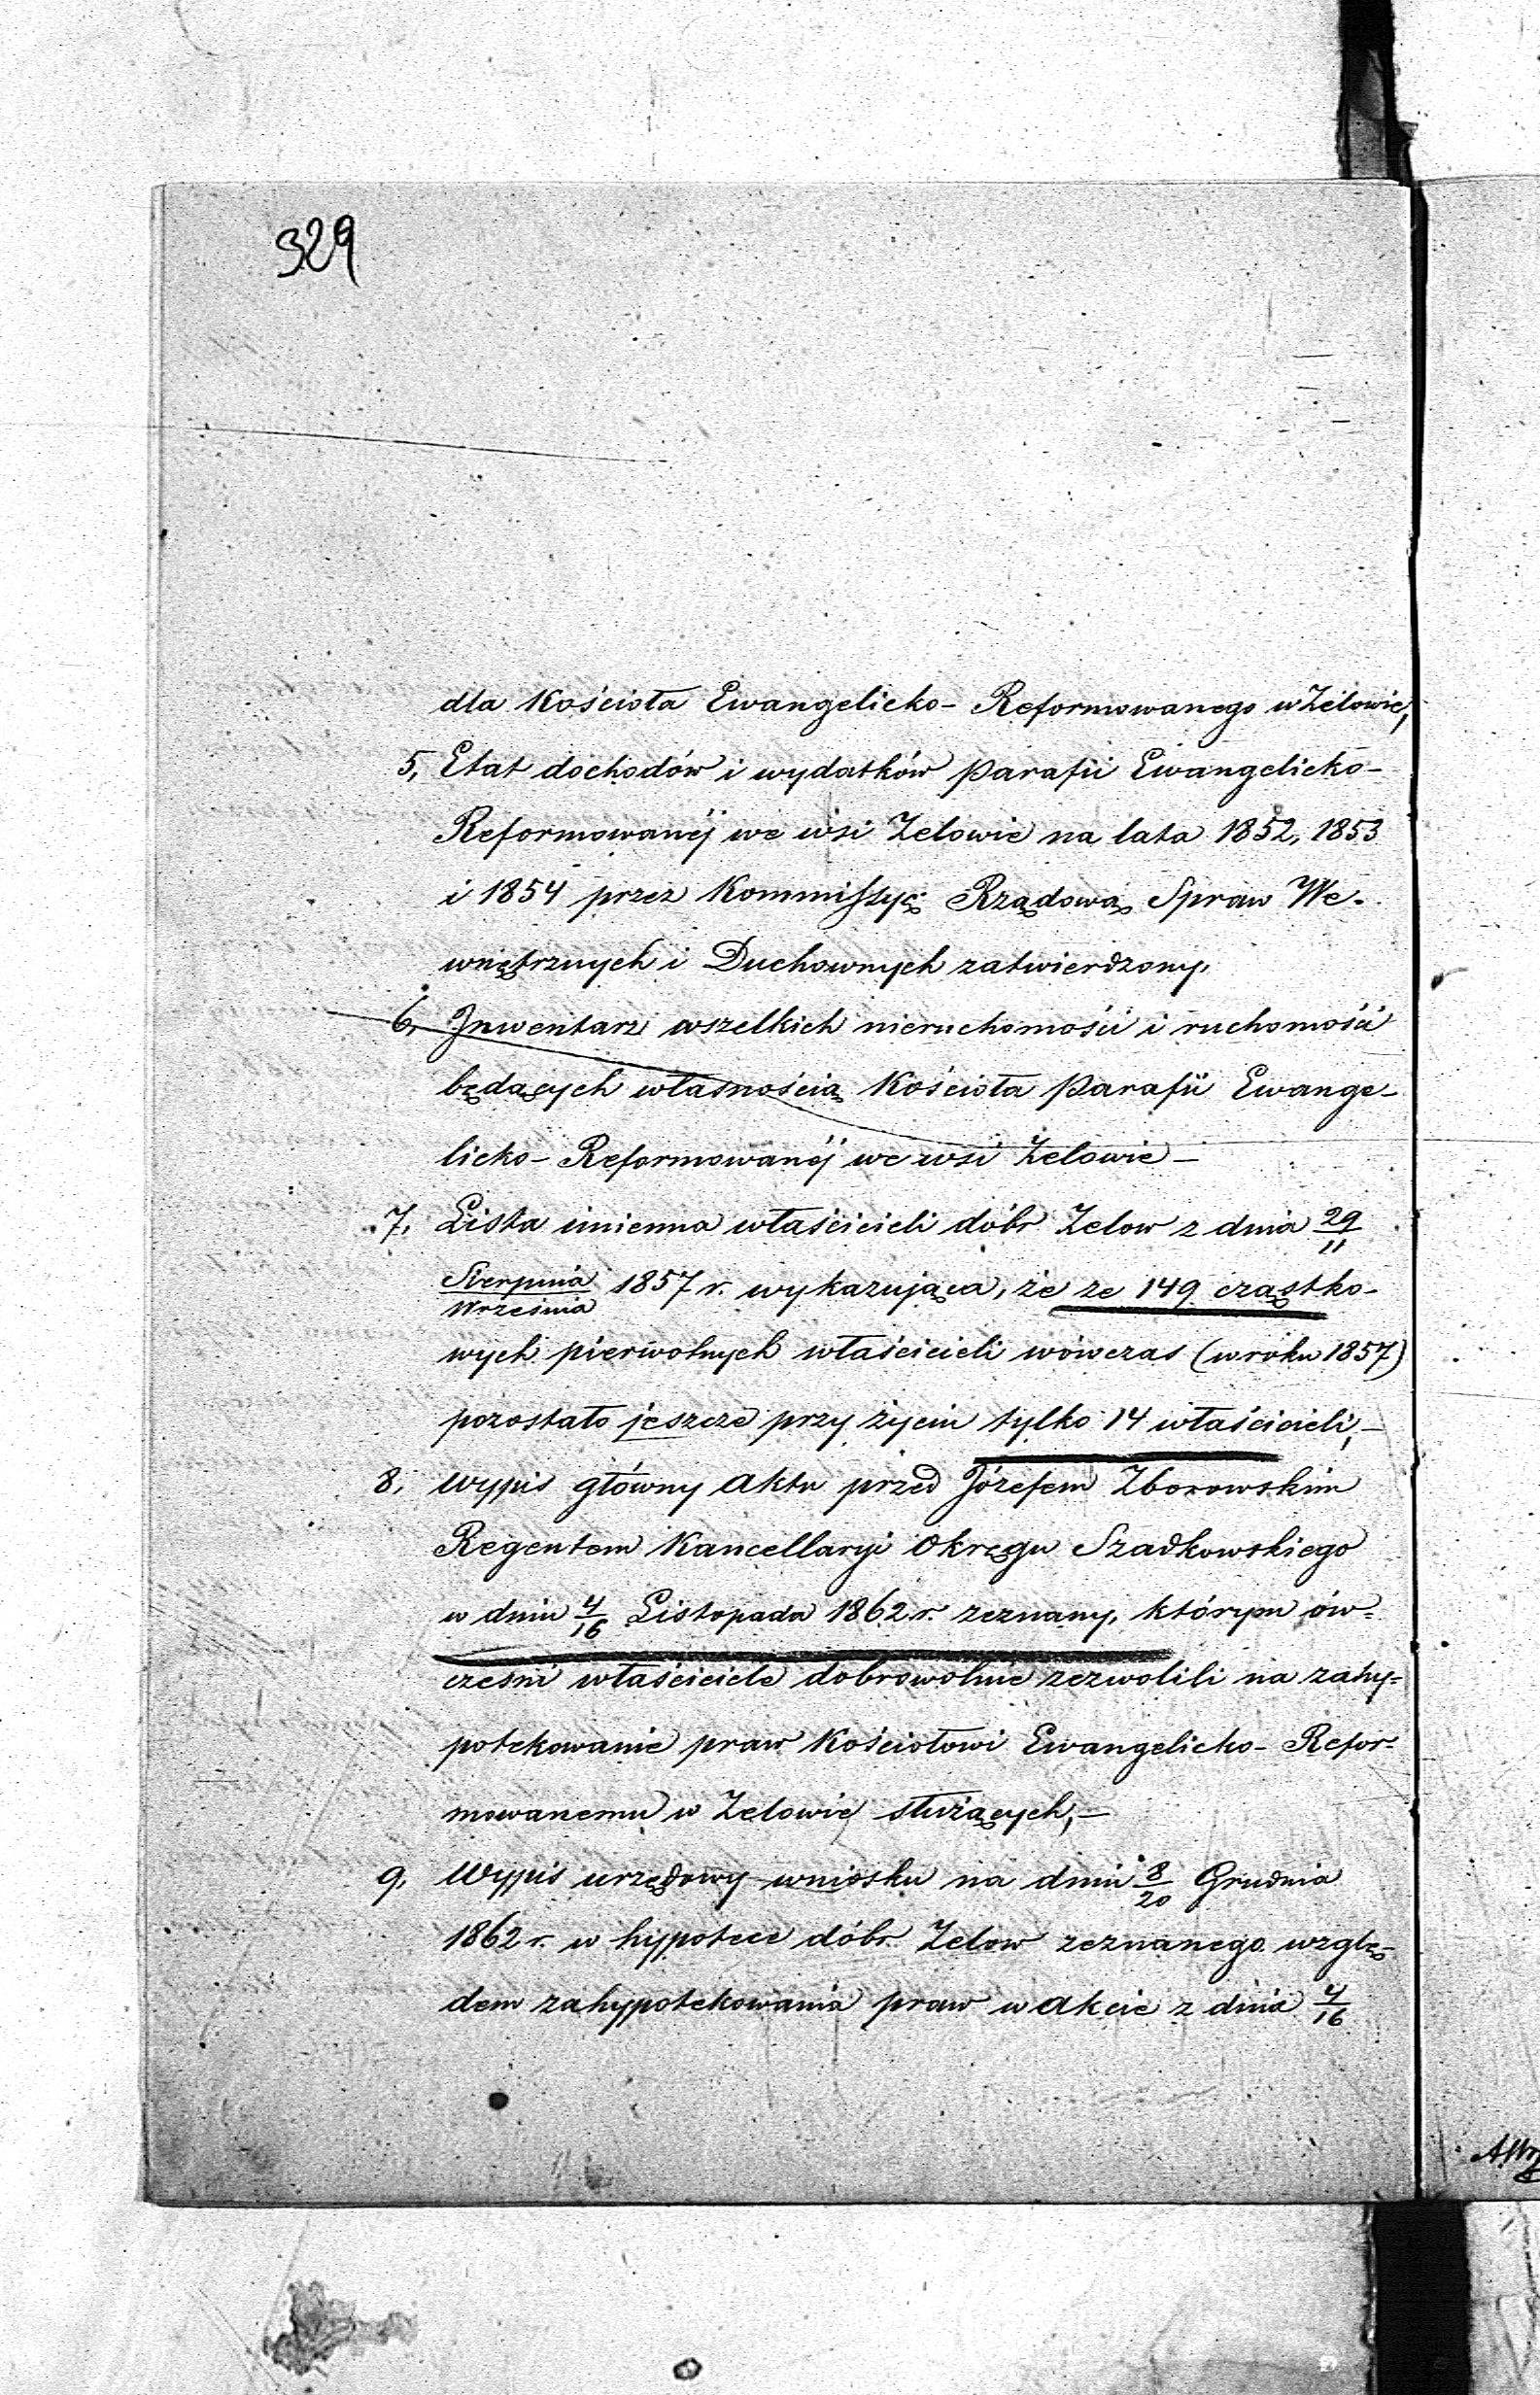 329
dla Kościoła Ewangelicko- Reformowanego w Zelowie,
5, Etat dochodów i wydatków Parafii Ewangelicko-
Reformowanéj we wsi Zelowie na lata 1852, 1853
i 1854 przez Kommissyę Rządową Spraw We-
wnętrznych i Duchownych zatwierdzony,
6, Inwentarz wszelkich nieruchomości i ruchomości
będących własnością Kościoła Parafii Ewange-
licko- Reformowanéj we wsi Zelowie-
7, Lista imienna właścicieli dóbr Zelow z dnia 29/11
Sierpnia/Września 1857 r. wykazująca, że ze 149 cząstko-
wych pierwotnych właścicieli wówczas (w roku 1857)
pozostało jeszcze przy życiu tylko 14 właścicieli,-
8, Wypis główny Aktu przed Józefem Zborowskim
Regentem Kancellaryi Okręgu Szadkowskiego
w dniu 4/16 Listopada 1862 r. zeznany, którym ów=
cześni właściciele dobrowolnie zezwolili na zahy=
potekowanie praw Kościołowi Ewangelicko- Refor=
mowanemu w Zelowie służących,-
9, Wypis urzędowy wniosku na dniu 8/20 Grudnia
1862 r. w hypotece dóbr Zelow zeznanego wzglę-
dem zahypotekowania praw w Akcie z dnia 4/16